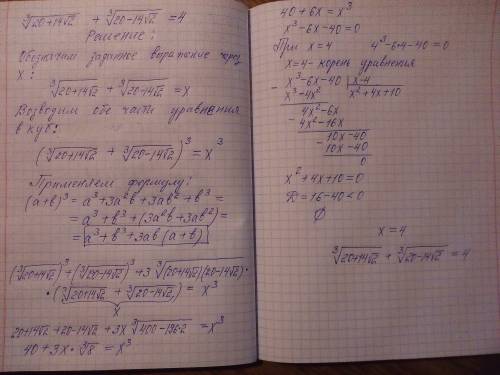 ∛(20+14√2) + ∛(20-14√2) = 4
Решение:
Обозначим заданное выражение через
x:
∛(20+14√2) + ∛(20-14√2) = x
Возводим обе части уравнения
в куб:
(∛(20+14√2) + ∛(20-14√2))³ = x³
Применяем формулу:
(a+b)³ = a³+3a²b+3ab²+b³ =
= a³+b³+(3a²b+3ab²) =
= a³+b³+3ab(a+b)
(∛(20+14√2))³+(∛(20-14√2))³+3∛((20+14√2)(20-14√2)) ·
· (∛(20+14√2) + ∛(20-14√2)) = x³
x
20+14√2+20-14√2+3x∛(400-196·2) = x³
40+3x·∛8 = x³
40+6x = x³
x³-6x-40=0
При x=4 4³-6·4-40=0
x=4- корень уравнения
x³-6x-40 | x-4
x³-4x² x²+4x+10
4x²-6x
4x²-16x
10x-40
10x-40
0
x²+4x+10=0
D=16-40<0
∅
x=4
∛(20+14√2) + ∛(20-14√2) = 4